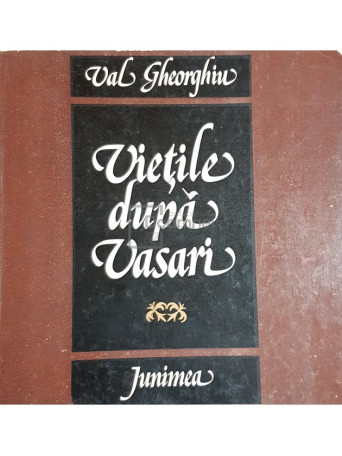 Val Gheorghiu
Viețile
după
Vasari
Junimea